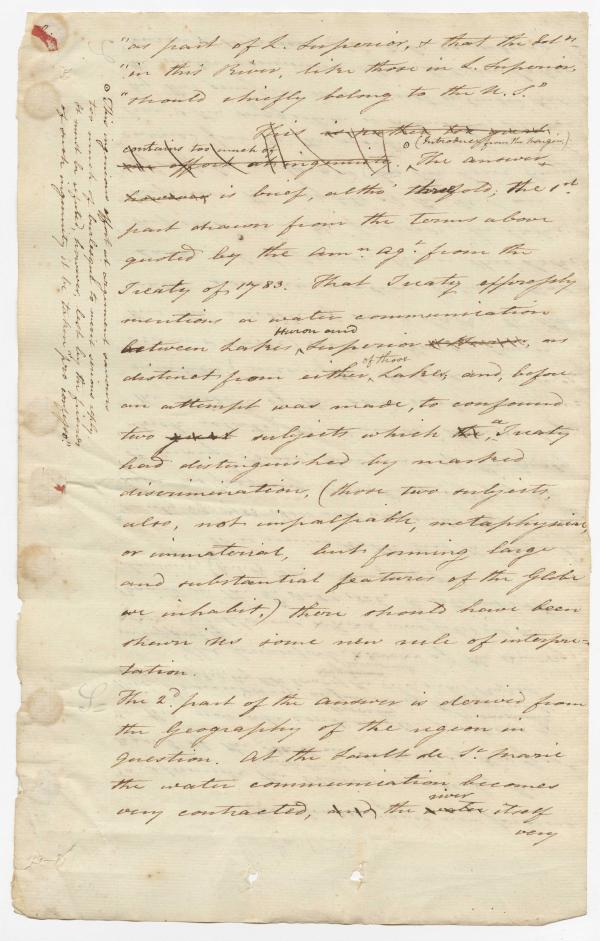 "as part of L. Superior, & that the Isl.ds
"in this River, like those in L. Superior,
"should chiefly belong to the U. S."
This is rather too great
contains too much of
an effort at ingenuity. (Introduce from the margin)
The answer,
however is brief, altho' threefold; the 1st
part drawn from the terms above
quoted by the Amn. agt. from the
Treaty of 1783. That Treaty expressly
mentions a water communication
Huron and
between Lakes Superior, as
of those
distinct from either Lake, and, before
an attempt was made, to confound
two great subjects which the a Treaty
had distinguished by marked
discrimination, (those two subjects,
also, not impalpable, metaphysical,
or immaterial, but forming large
and substantial features of the Globe
we inhabit,) there should have been
shewn us some new rule of interpre-
tation.
The 2d. part of the answer is derived from
the Geography of the region in
question. At the Sault de St. Marie
the water communication becomes
river
very contracted, and the water itself
very
This ingenious effort at argument savours
too much of burlesque to merit serious reply
It must be rejected, however, lest by the friends
of such ingenuity it be taken "pro confesso"